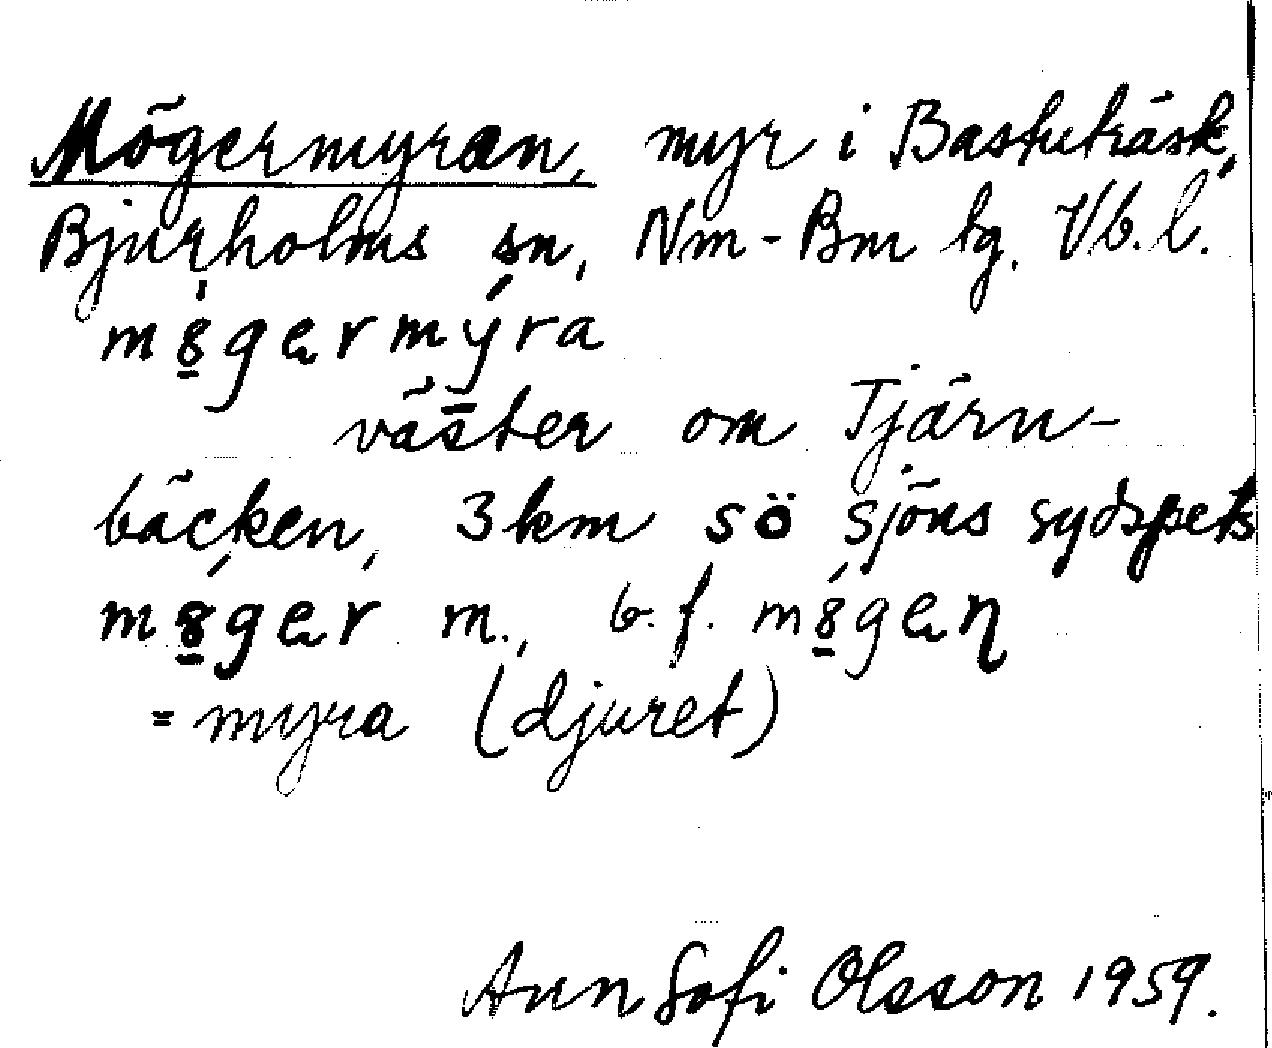 Mögermyran, myr i Bastuträsk,
Bjurholms sn, Nm-Bm tg. Vb. l.
mö̱germýra
väster om Tjärn-
bäcken, 3 km sö sjöns sydspets
mö̱ger m., b. f. mö̱gen
= myra (djuret)
Ann Sofi Olsson 1959.